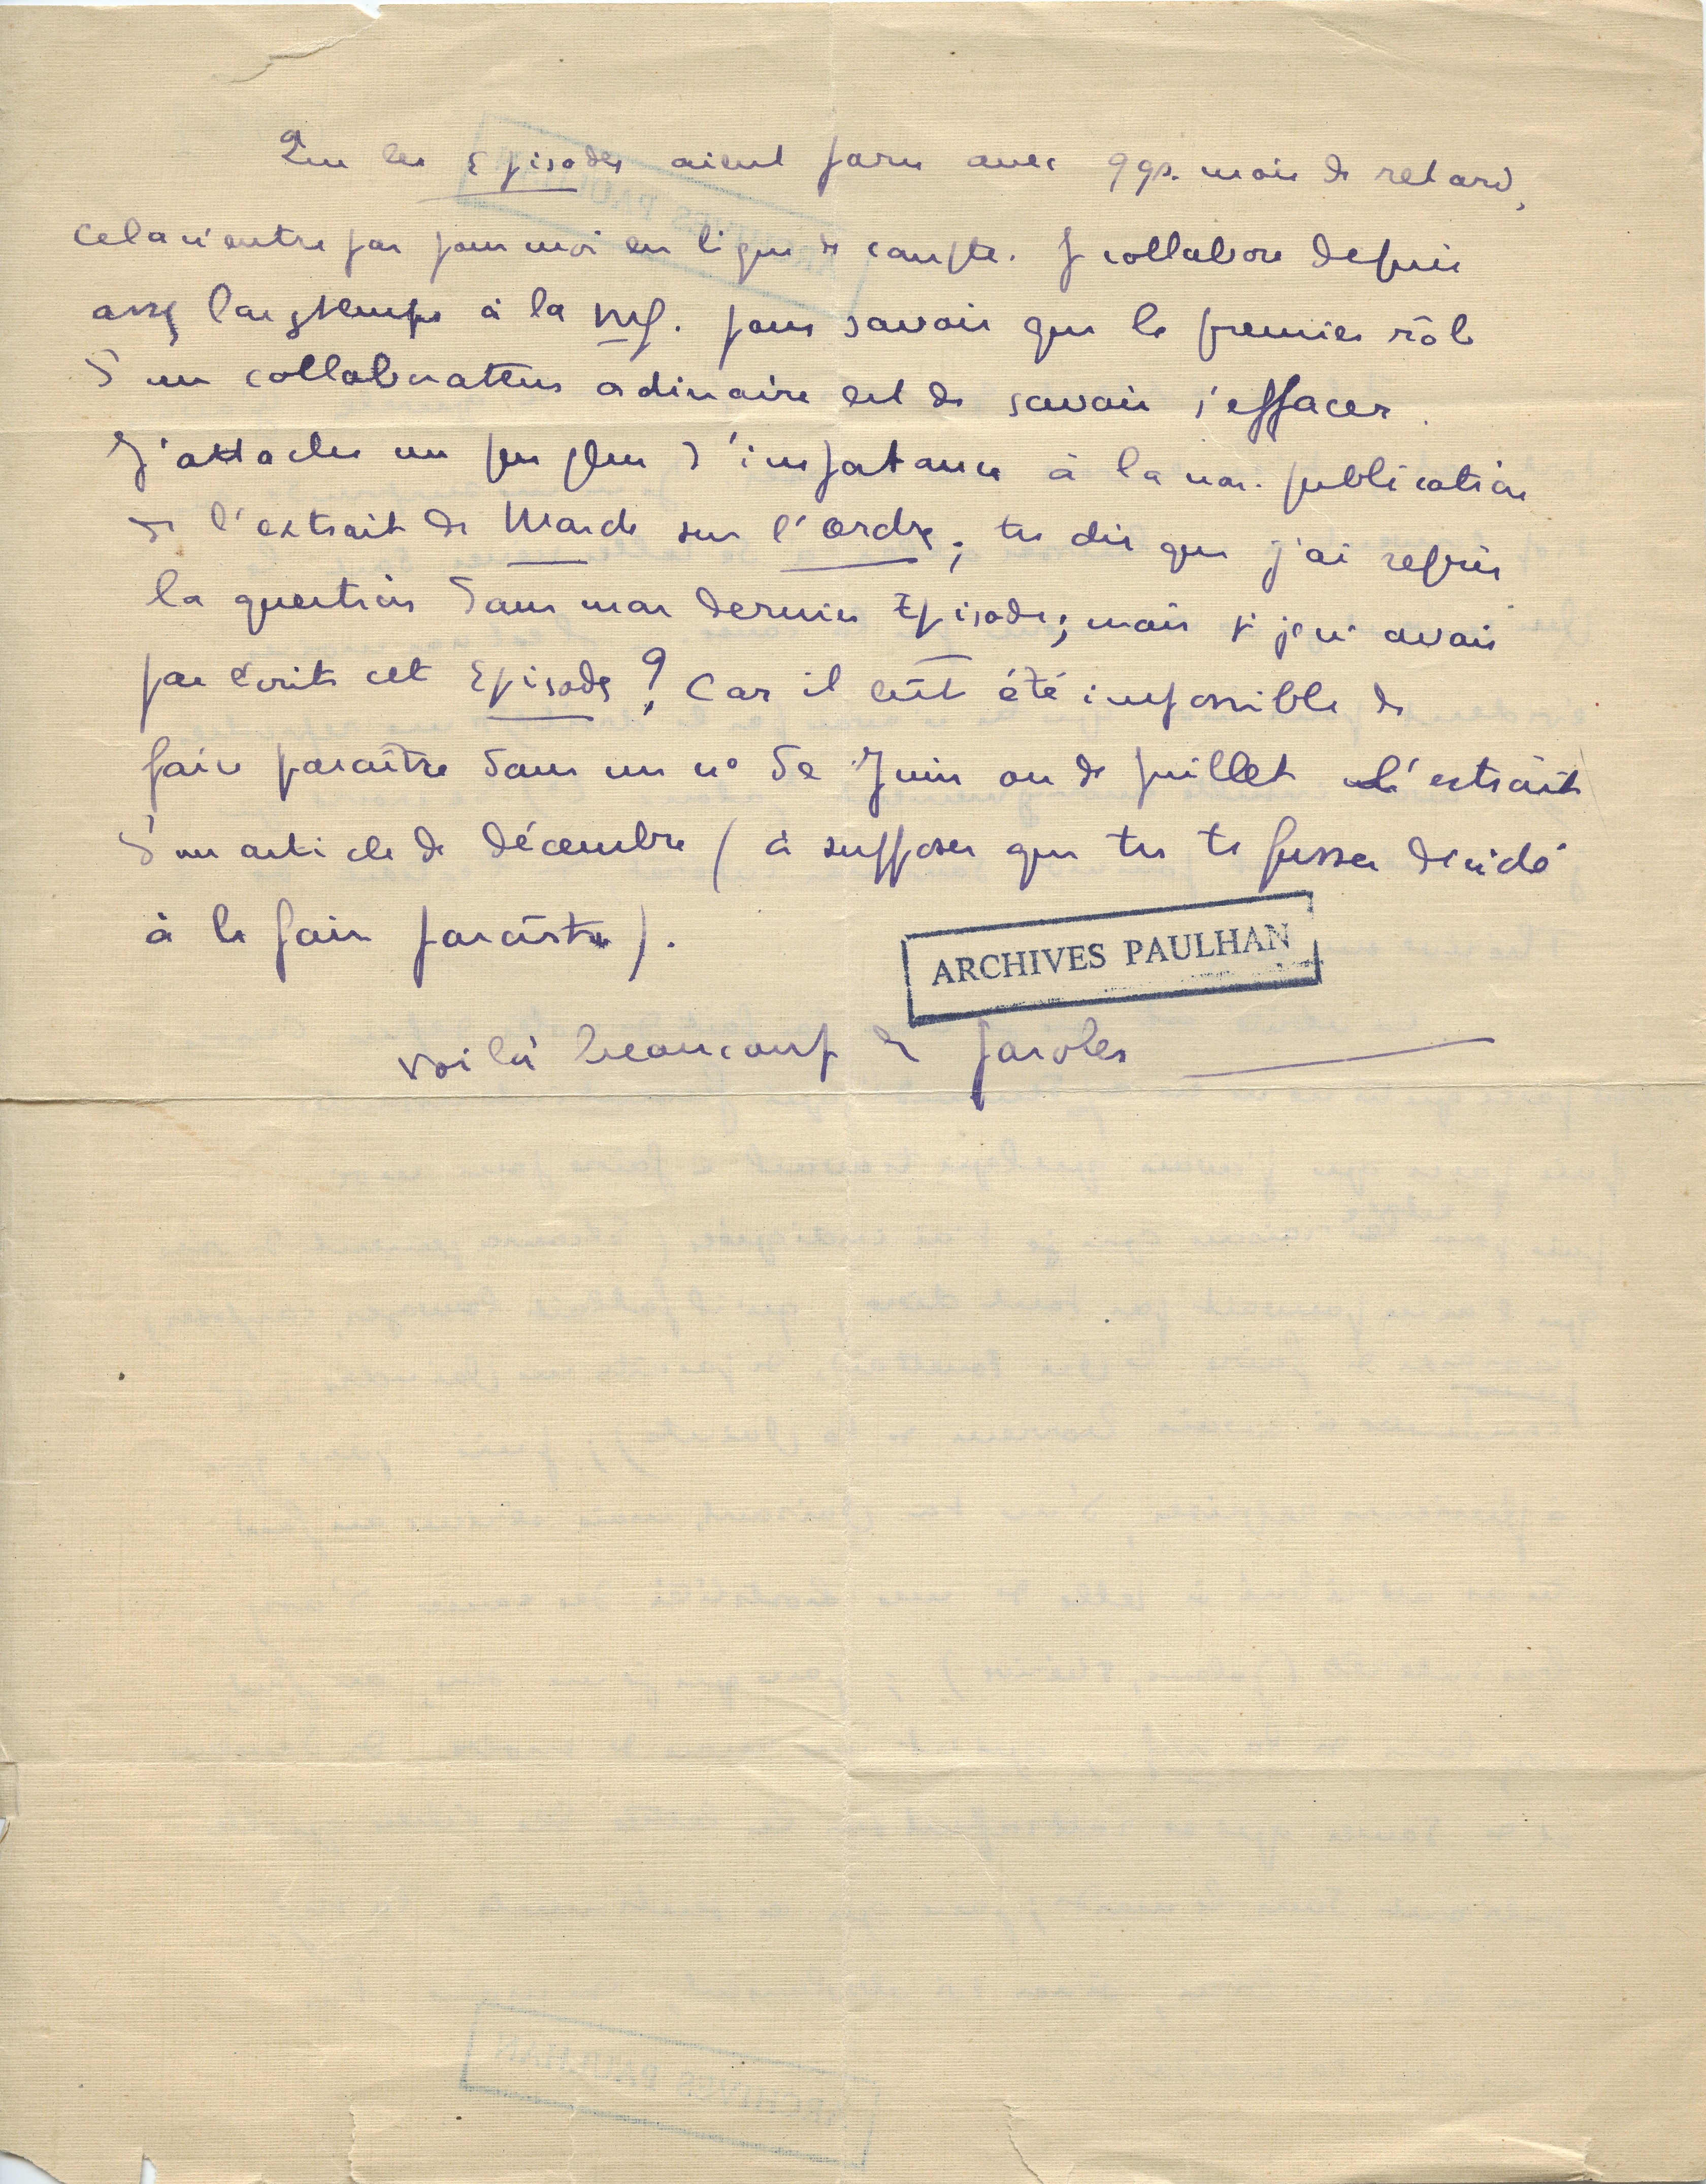 Que les Episodes aient paru avec qqs. mois de retard,
cela n'entre pas pour moi en ligne de compte. Je collabore depuis
assez longtemps à la nrf. pour savoir que le premier rôle
d'un collaborateur ordinaire est de savoir s'effacer.
J'attache un peu plus d'importance à la non-publication
de l'extrait de Monde sur l'ordre; tu dis que j'ai repris
la question dans mon dernier Episode; mais si je n'avais
pas écrit cet Episode? Car il eût été impossible de
faire paraître dans un n° de Juin ou de Juillet l'extrait
d'un article de décembre (à supposer que tu te fusses décidé
à le faire paraître).
ARCHIVES PAULHAN
Voilà beaucoup de paroles